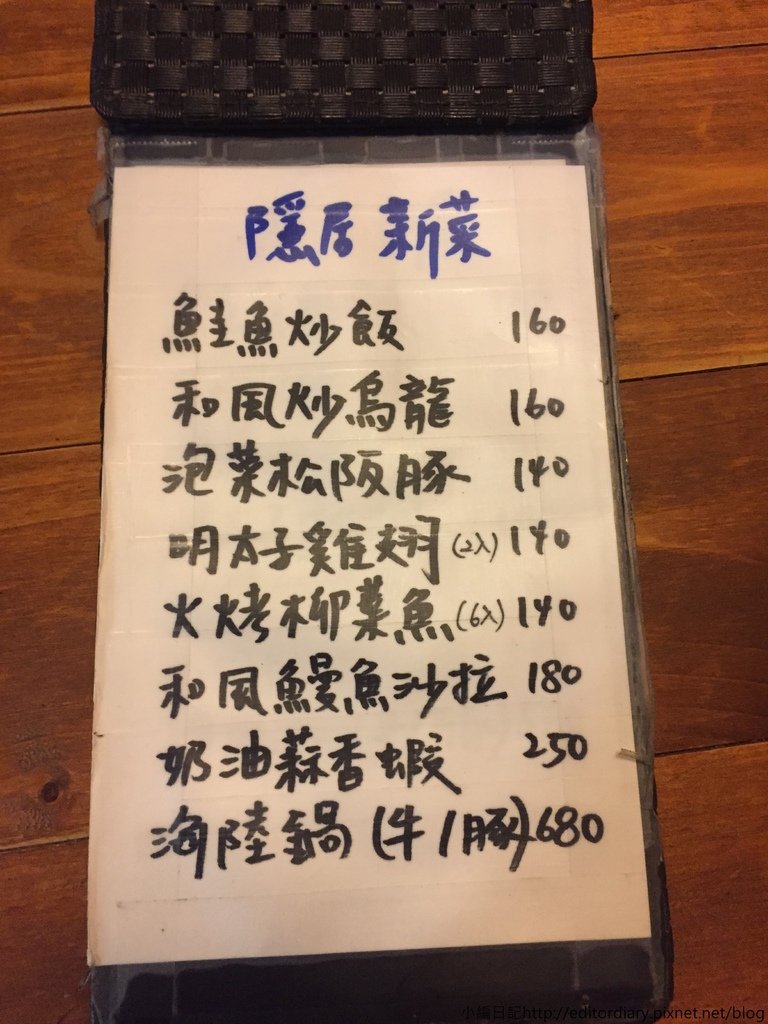 隱居新菜
鮭魚炒飯 160
和風炒烏龍 160
泡菜松阪豚 140
明太子雞翅(2入) 140
火烤柳葉魚(6入) 140
和風鰻魚沙拉 180
奶油蒜香蝦 250
海陸鍋(牛/豚) 680
小編日記http://editordiary.pixnet.net/blog